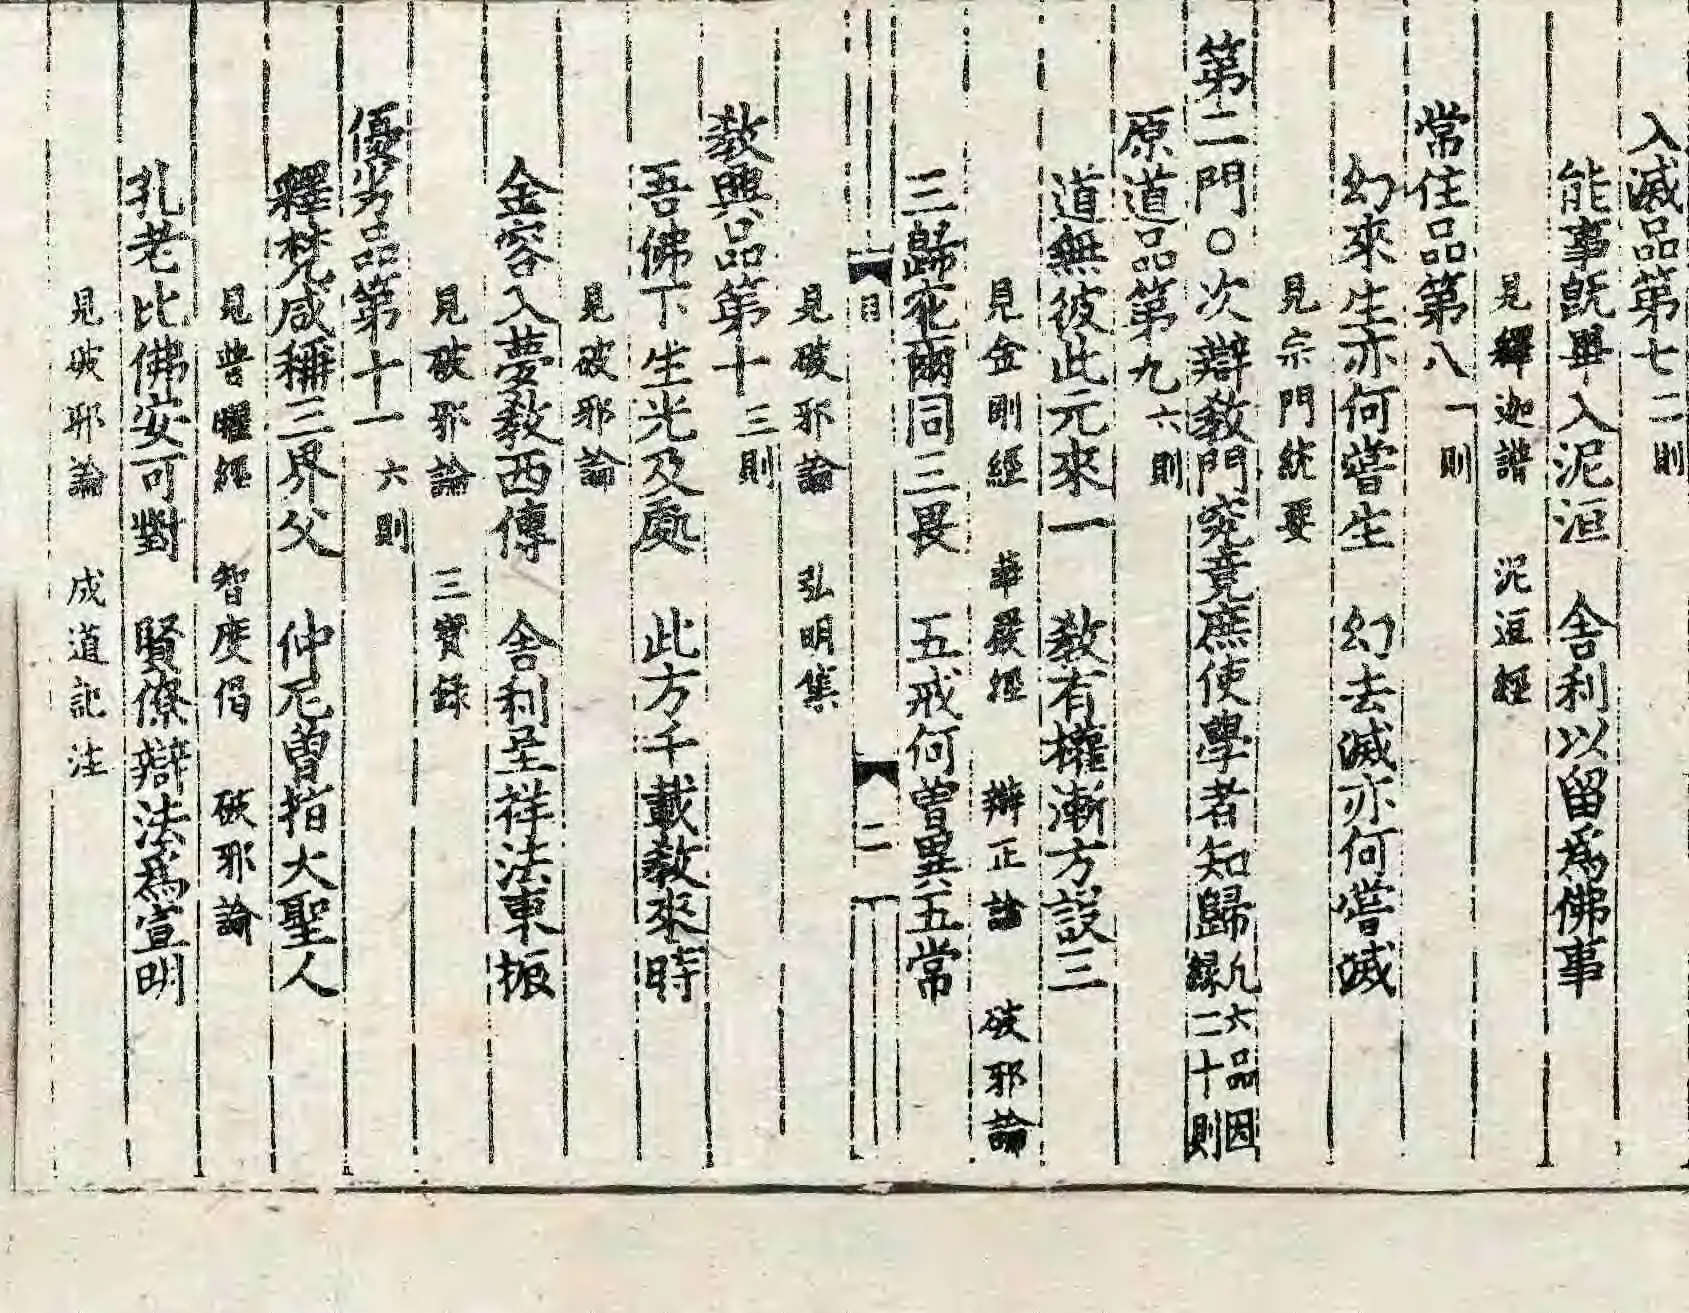 入滅品第七 二則
能事既畢入泥洹 舍利以留爲佛事
見釋迦譜 泥洹經
常住品第八 一則
幻來生亦何嘗生 幻去滅亦何嘗滅
見宗門統要
第二門○次辯教門究竟庶使學者知歸 凡六品因緣二十則
原道品第九 六則
道無彼此元來一 教有權漸方設三
見金剛經 華嚴經 辯正論 破邪論
三歸宛爾同三畏 五戒何曾異五常
目 二
見破邪論 弘明集
教興品第十 三則
吾佛下生光及處 此方千載教來時
見破邪論
金容入夢教西傳 舍利呈祥法東振
見破邪論 三寶録
優劣品第十一 六則
釋梵咸稱三界父 仲尼曽指大聖人
見普曜經 智度偈 破邪論
孔老比佛安可對 賢僚辯法爲宣明
見破邪論 成道記注